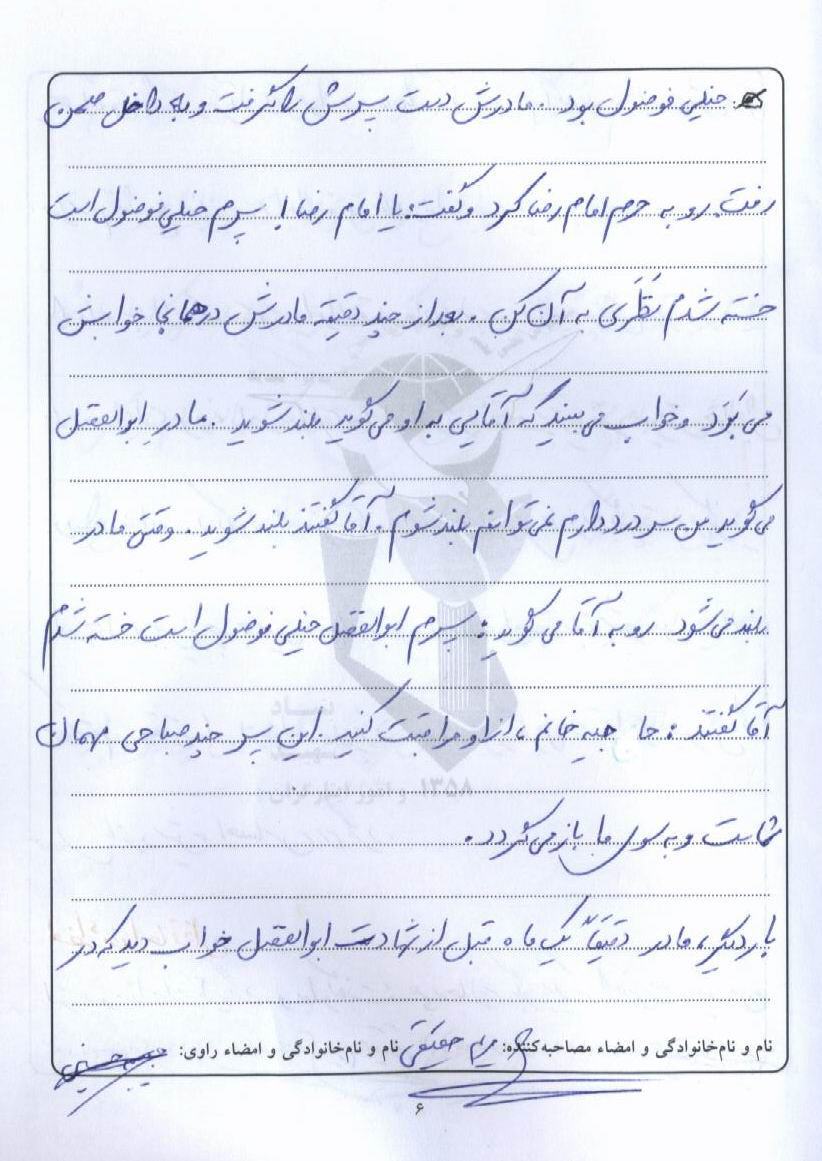 خیلی فوضول بود. مادرش دست پسرش را گرفت و به داخل صحن
رفت. رو به حرم امام رضا کرد و گفت: یا امام رضا! پسرم خیلی فوضول است
خسته شدم نَظَری به آن کن. بعد از چند دقیقه مادرش در همانجا خوابش
می بَرَد و خواب می بیند که آقایی به او می گوید بلند شوید. مادرِ ابوالفضل
می گوید من سر درد دارم نمی توانم بلند شوم. آقا گفتند بلند شوید. وقتی مادر
بلند می شود رو به آقا می گوید: پسرم ابوالفضل خیلی فوضول است خسته شدم
آقا گفتند: حاجیه خانم، از او مراقبت کنید. این پسر چند صباحی مهمان
شماست و به سوی ما باز می گردد.
بار دیگر، مادر دقیقاً یک ماه قبل از شهادت ابوالفضل خواب دید که در
نام و نام خانوادگی و امضاء مصاحبه کننده: مریم حقیقی نام و نام خانوادگی و امضاء راوی:
۶
۱۳۵۸